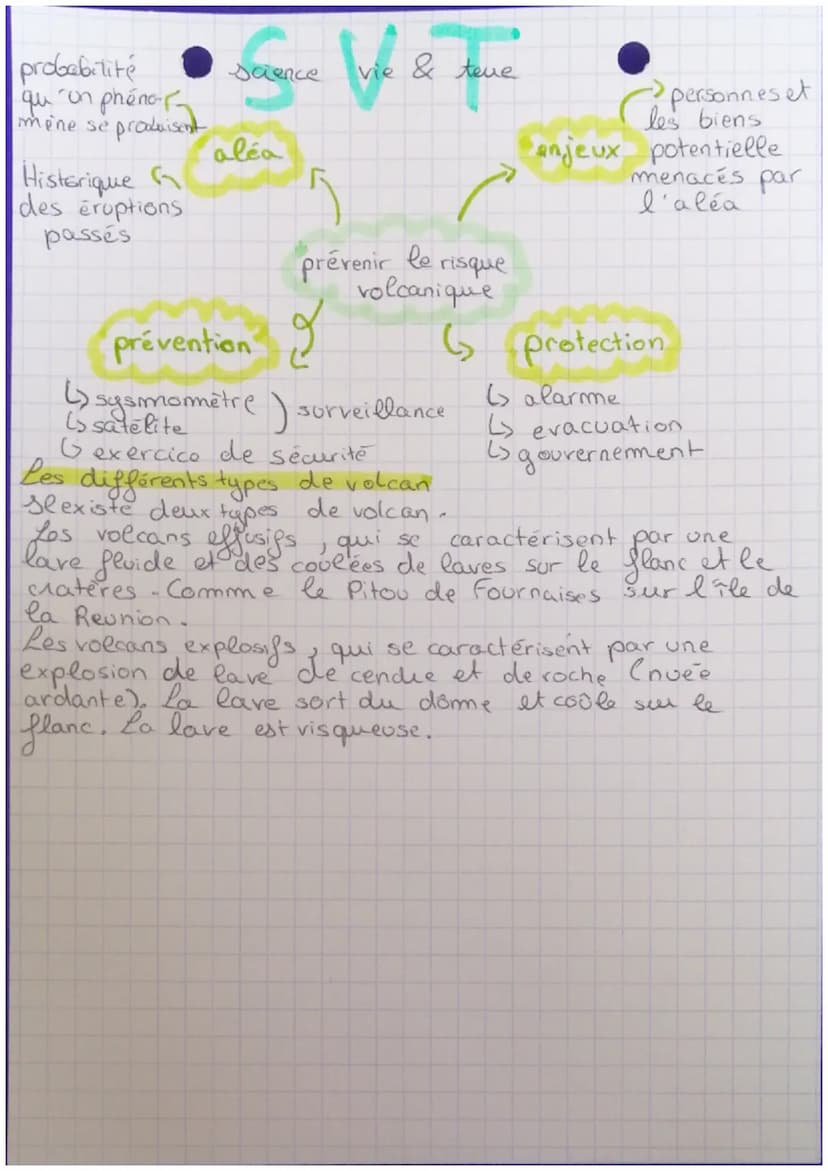 SVT
science vie & terre
probabilité
qu'un phéno-
mène se produisent
aléa
Historique
des éruptions
passés
enjeux
personnes et
les biens
potentielle
menacés par
l'aléa
prévenir le risque
volcanique
prévention
↳ sysmnomètre ) surveillance
↳ satélite
↳ exercice de sécurité
protection
↳ alarme
↳ evacuation
↳ gouvernement
Les différents types de volcan
Il existe deux types de volcan.
Les volcans effusifs, qui se caractérisent par une
lave fluide et des coulées de laves sur le flanc et le
cratères. Comme le Pitou de Fournaises sur l'île de
la Reunion.
Les volcans explosifs, qui se caractérisent par une
explosion de lave de cendre et de roche (nuée
ardante). La lave sort du dôme et coûle sur le
flanc. La lave est visqueuse.